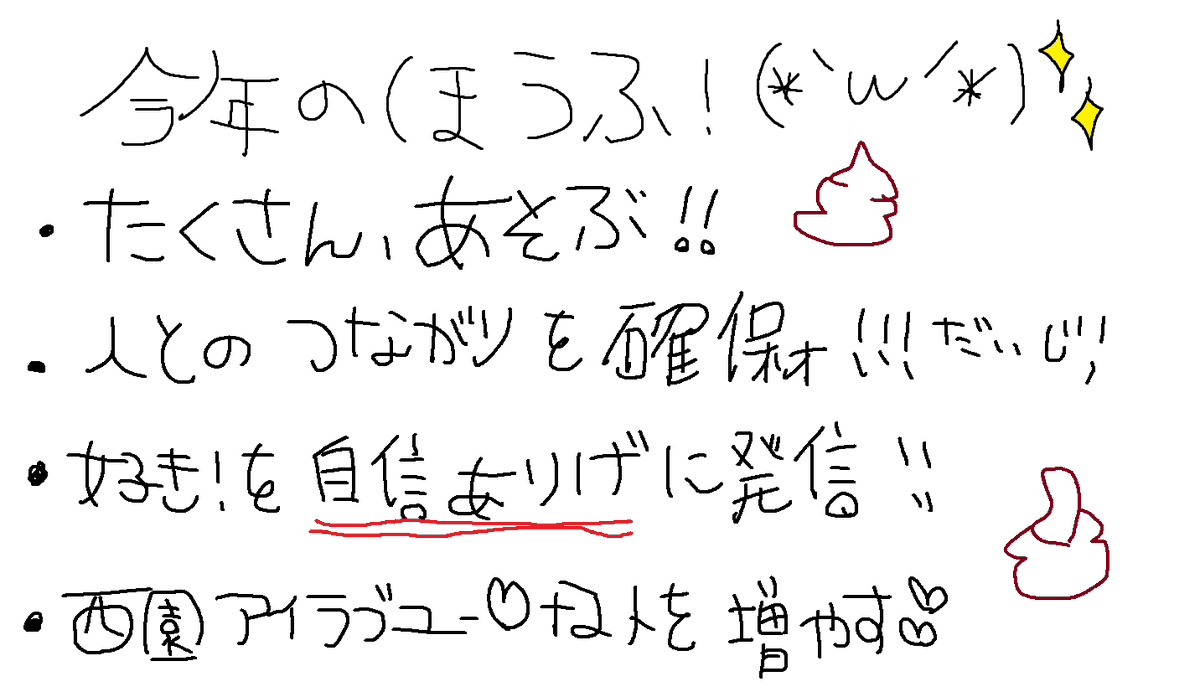 今年のほうふ！(*`ω´*)
・たくさん、あそぶ!!
・人とのつながりを確保ォ!!!だいじ!!
・好き！を自信ありげに発信!!
・西園アイラブユー♡な人を増やす♡♡